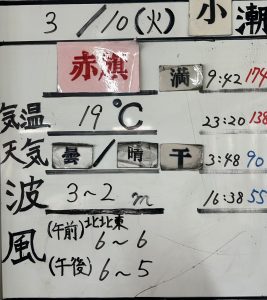 3/10(火) 小潮
赤旗 満 9:42 174
気温 19℃ 23:20 138
天気 曇/晴 干 3:48 90
波 3~2m 16:38 55
風 (午前) 北北東 6~6
(午後) 6~5